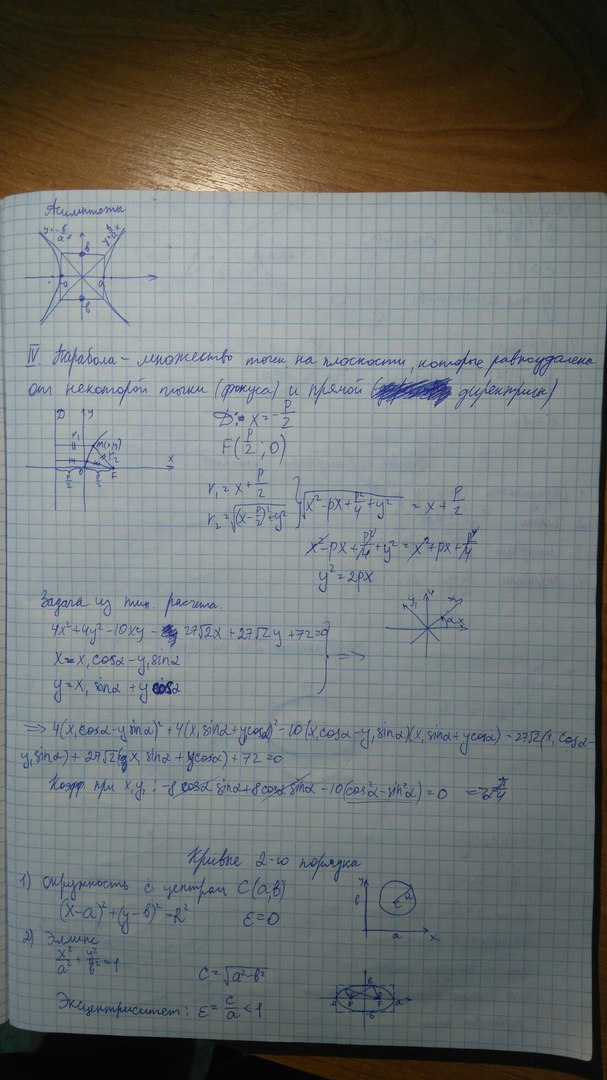 Асимптоты
y=-b/a x
y=b/a x
b
-a
a
-b
IV Парабола – множество точек на плоскости, которые равноудалены
от некоторой точки (фокуса) и прямой (директрисы)
D y
D: x=-p/2
F(p/2; 0)
r₁ M(x,y)
r₂
x
p/2 0 p/2 F
r₁=x+p/2
r₂=√((x-p/2)²+y²)
√(x²-px+p²/4+y²) = x+p/2
x²-px+p²/4+y²=x²+px+p²/4
y²=2px
Задача из тип. расчета.
y₁ y x₁
α x
4x²+4y²-10xy-27√2x+27√2y+72=0
x=x₁cosα-y₁sinα
y=x₁sinα+y cosα
=> 4(x₁cosα-y sinα)²+4(x₁sinα+y cosα)²-10(x₁cosα-y₁sinα)(x₁sinα+y cosα)-27√2(x₁cosα-
y₁sinα)+27√2(x₁sinα+y cosα)+72=0
Коэфф. при x₁y₁: -8 cosα sinα+8 cosα sinα-10(cos²α-sin²α)=0 => α π/4
Кривые 2-го порядка
1) окружность с центром C(a,b)
(x-a)²+(y-b)²=R²
ε=0
y
b
C R
a x
2) Эллипс
x²/a²+y²/b²=1
c=√(a²-b²)
Эксцентриситет: ε=c/a<1
b
-a
F
a
-b